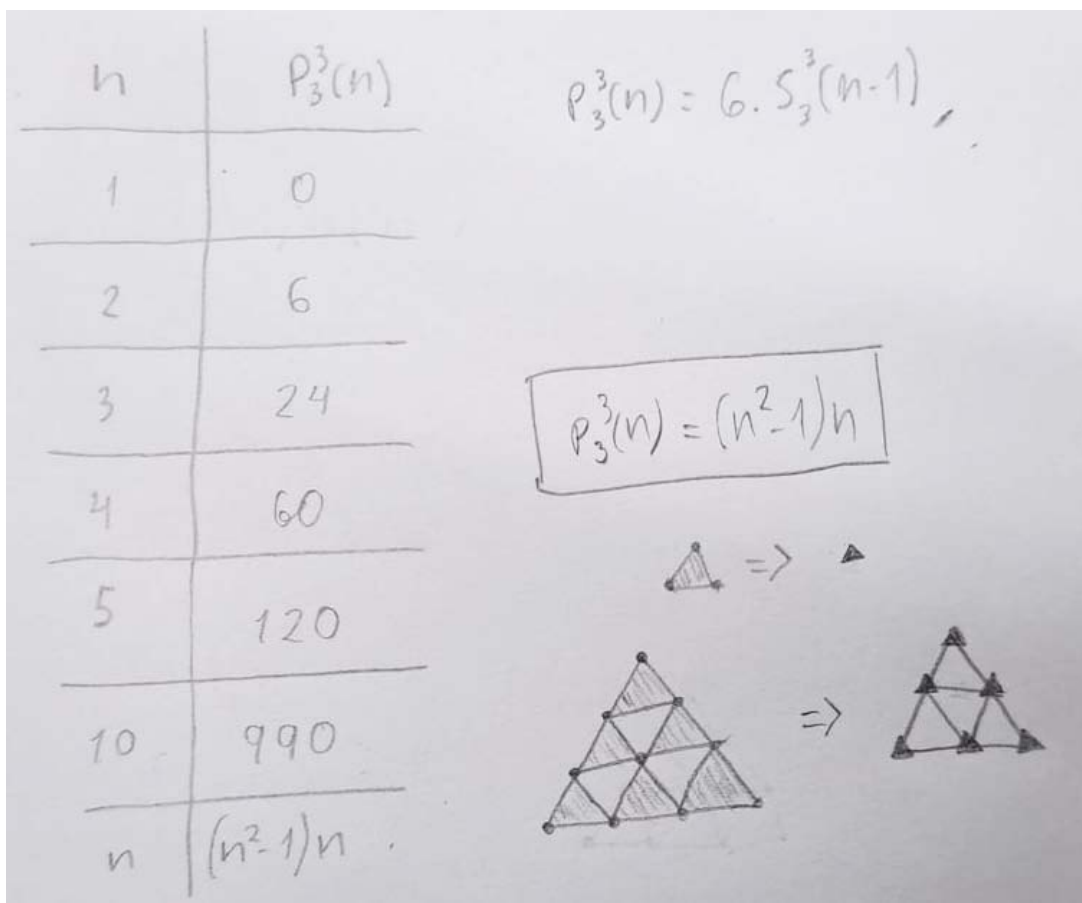 n P₃³(n)
1 0
2 6
3 24
4 60
5 120
10 990
n (n²-1)n .
P₃³(n) = 6. S₃³(n-1),
P₃³(n) = (n²-1)n
=>
=>